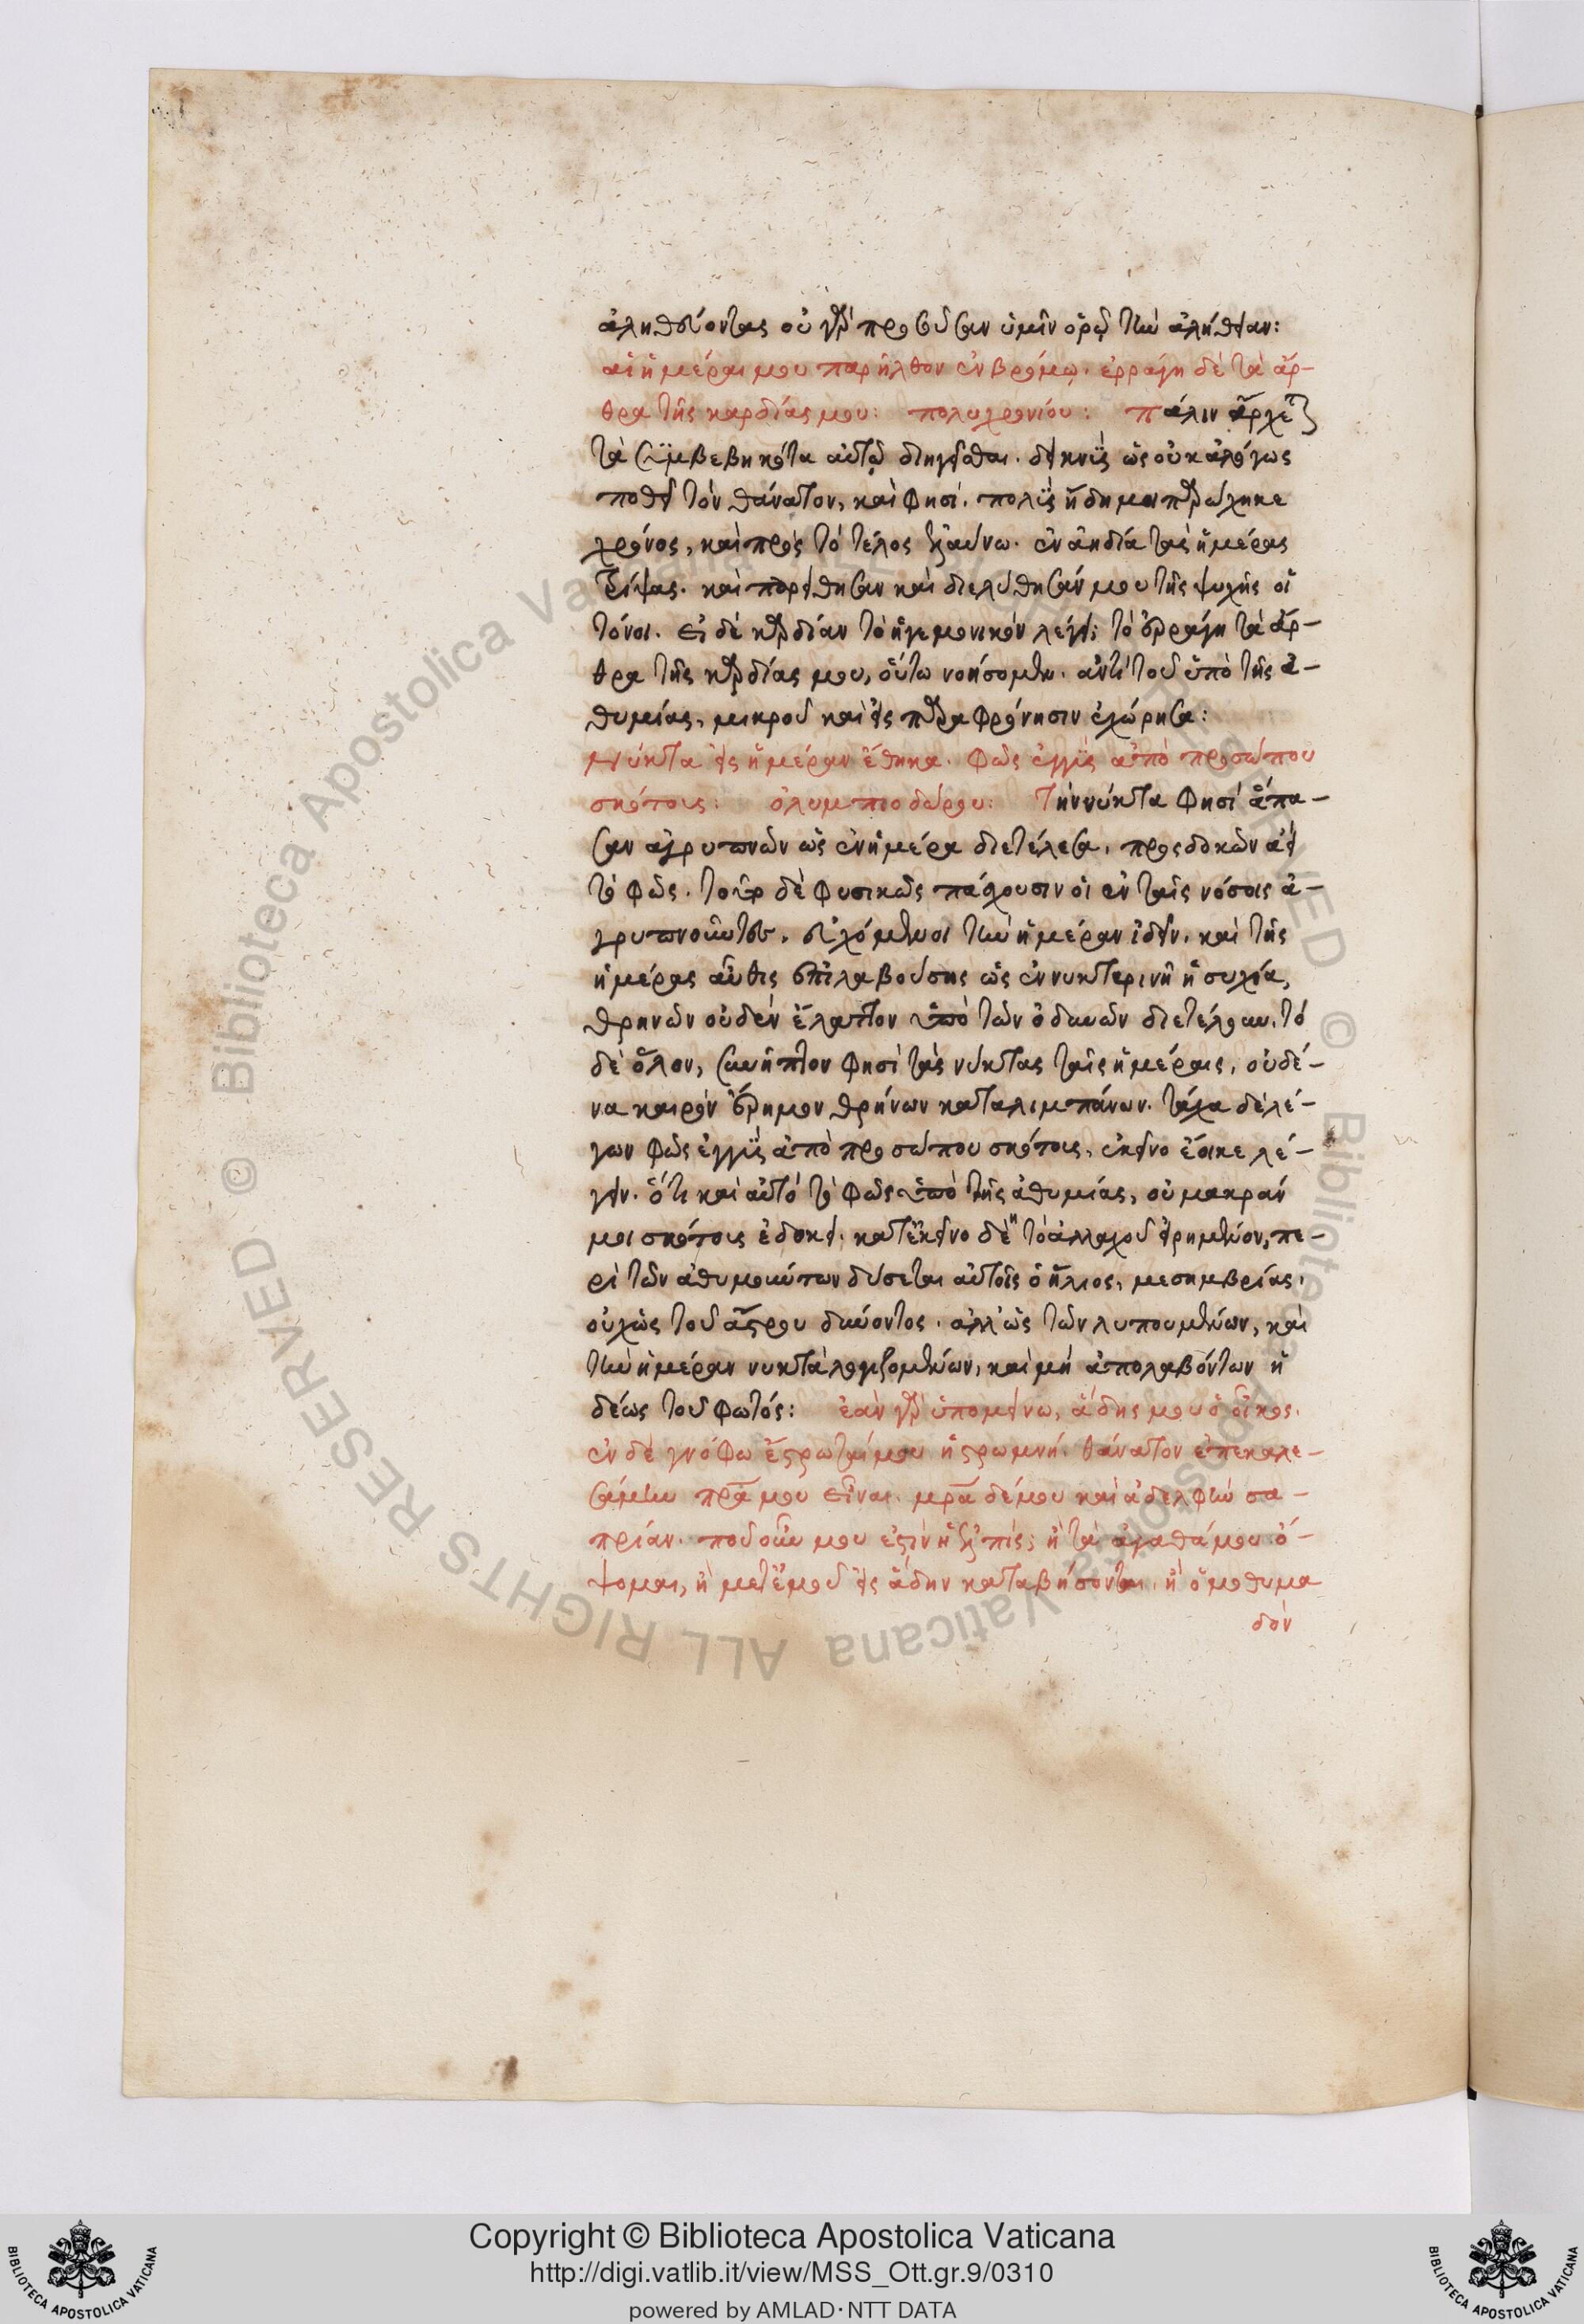 ἀληθεύοντας οὐ γὰρ προσοῦσαν ὑμῖν ὁρῶ τὴν ἀλήθειαν:
αἱ ἡμέραι μου παρῆλθον ἐν βρόμῳ. ἐρράγη δὲ τὰ ἄρ-
θρα τῆς καρδίας μου: πολυχρονίου: πάλιν ἄρχεται
τὰ συμβεβηκότα αὐτῷ διηγεῖσθαι. δεικνὺς ὡς οὐκ ἀλόγως
ποθεῖ τὸν θάνατον, καὶ φησί. πολὺς ἤδη μοι παρώχηκε
χρόνος, καὶ πρὸς τὸ τέλος ἐλαύνω. ἐν ἀηδία τὰς ἡμέρας
τρίψας. καὶ παρείθησαν καὶ διελύθησάν μου τῆς ψυχῆς οἱ
τόνοι. εἰ δὲ καρδίαν τὸ ἡγεμονικὸν λέγει; τὸ ἐρράγη τὰ ἄρ-
θρα τῆς καρδίας μου, οὕτω νοήσομεν. ἀντὶ τοῦ ὑπὸ τῆς ἀ-
θυμίας, μικροῦ καὶ εἰς παραφρόνησιν ἐχώρησα:
Νύκτα εἰς ἡμέραν ἔθηκα. φῶς ἐγγὺς ἀπὸ προσώπου
σκότους: ὀλυμπιοδώρου: Τὴν νύκτα φησὶ ἅπα-
σαν ἀγρυπνῶν ὡς ἐν ἡμέρα διετέλεσα. προσδοκῶν ἀεὶ
τὸ φῶς. τοῦτο δὲ φυσικῶς πάσχουσιν οἱ ἐν ταῖς νόσοις ἀ-
γρυπνοῦντες. εὐχόμενοι τὴν ἡμέραν ἰδεῖν. καὶ τῆς
ἡμέρας αὖθις ἐπιλαβούσης ὡς ἐν νυκτερινῆ ἡσυχία,
θρηνῶν οὐδὲν ἔλαττον ὑπὸ τῶν ὀδυνῶν διετέλουν. τὸ
δὲ ὅλον, συνῆπτον φησὶ τὰς νύκτας ταῖς ἡμέραις, οὐδέ-
να καιρὸν ἔρημον θρήνων καταλιμπάνων. τάχα δὲ λέ-
γων φῶς ἐγγὺς ἀπὸ προσώπου σκότους, ἐκεῖνο ἔοικε λέ-
γειν. ὅτι καὶ αὐτὸ τὸ φῶς ὑπὸ τῆς ἀθυμίας, οὐ μακράν
μοι σκότους ἐδόκει. κατ' ἐκεῖνο δὲ ἢ τὸ ἀλλαχοῦ εἰρημένον, πε-
ρὶ τῶν ἀθυμούντων δύσεται αὐτοῖς ὁ ἥλιος, μεσημβρίας.
οὐχ ὡς τοῦ ἄστρου δύνοντος. ἀλλ' ὡς τῶν λυπουμένων, καὶ
τὴν ἡμέραν νύκτα λογιζομένων, καὶ μὴ ἀπολαβόντων ἡ
δέως τοῦ φωτός: ἐὰν γὰρ ὑπομείνω, ἅδης μου ὁ οἶκος.
ἐν δὲ γνόφω ἔστρωταί μου ἡ στρωμνή. θάνατον ἐπεκαλε-
σάμην πρα μου εἶναι. μρα δέ μου καὶ ἀδελφὴν σα-
πρίαν. ποῦ οὖν μου ἐστὶν ἡ ἐλπίς; ἢ τὰ ἀγαθά μου ὄ-
ψομαι, ἢ μετ' ἐμοῦ εἰς ἅδην καταβήσονται. ἢ ὁμοθυμα
δὸν
Copyright © Biblioteca Apostolica Vaticana
http://digi.vatlib.it/view/MSS_Ott.gr.9/0310
powered by AMLAD·NTT DATA